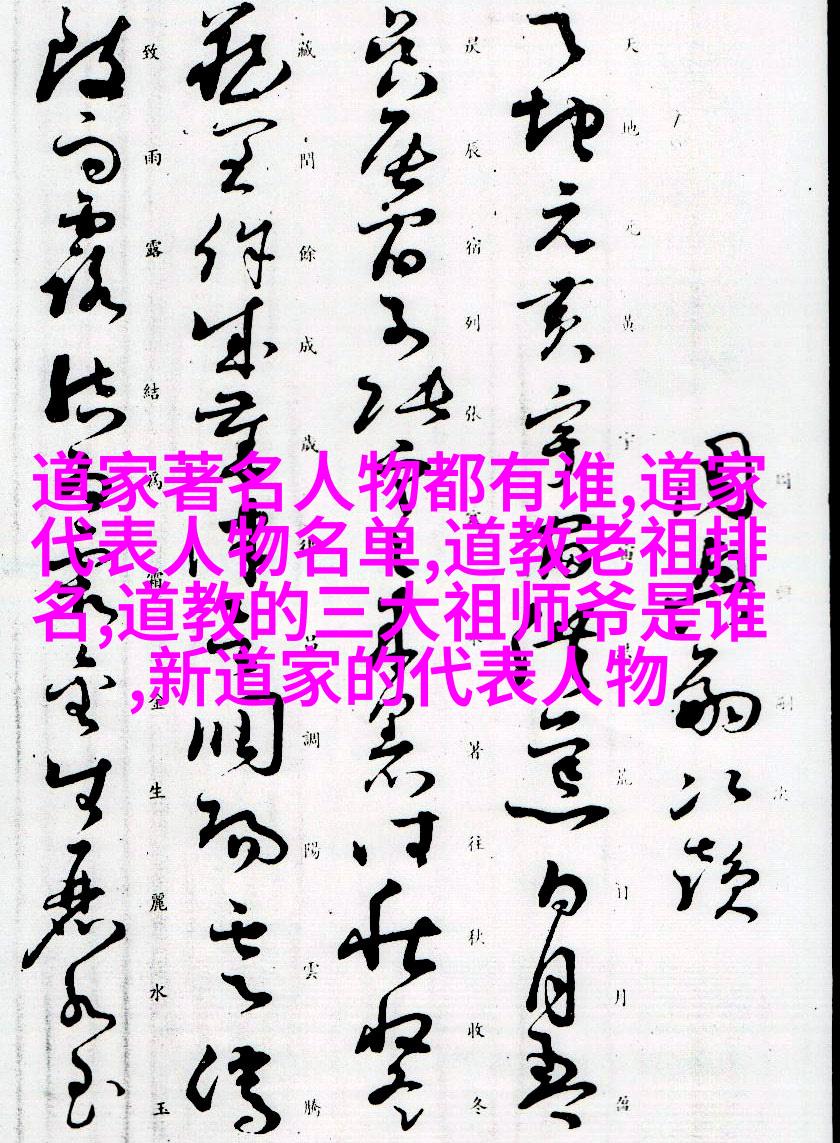 道家著名人物都有谁,道家
代表人物名单,道教老祖排
名,道教的三大祖师爷是谁
,新道家的代表人物
周興嗣次韻
天地元黄宇宙洪荒日月盈
昃辰宿列张寒来暑往秋收冬
藏閏餘成歲律吕調陽雲騰
致雨露結為霜金生麗水玉